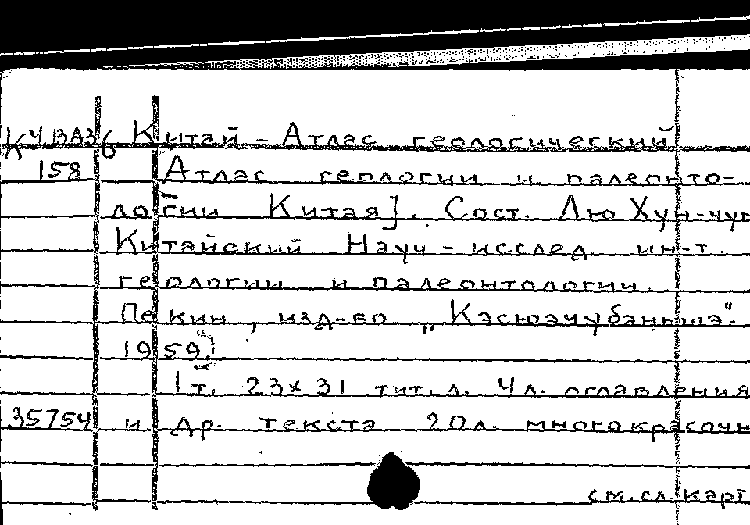 К Ч ВАЗ6 Китай - Атлас геологический
158 [Атлас геологии и палеонто-
логии Китая]. Сост. Лю Хун-чун
Китайский Науч-исслед. ин-т.
геологии и палеонтологии.
Пекин, изд-во „Кэсюэчубаньшэ".
1959.
1 т. 23x31 тит.л. 4 л. оглавления
35754 и др. текста 20л. многокрасочн
см.сл.карт